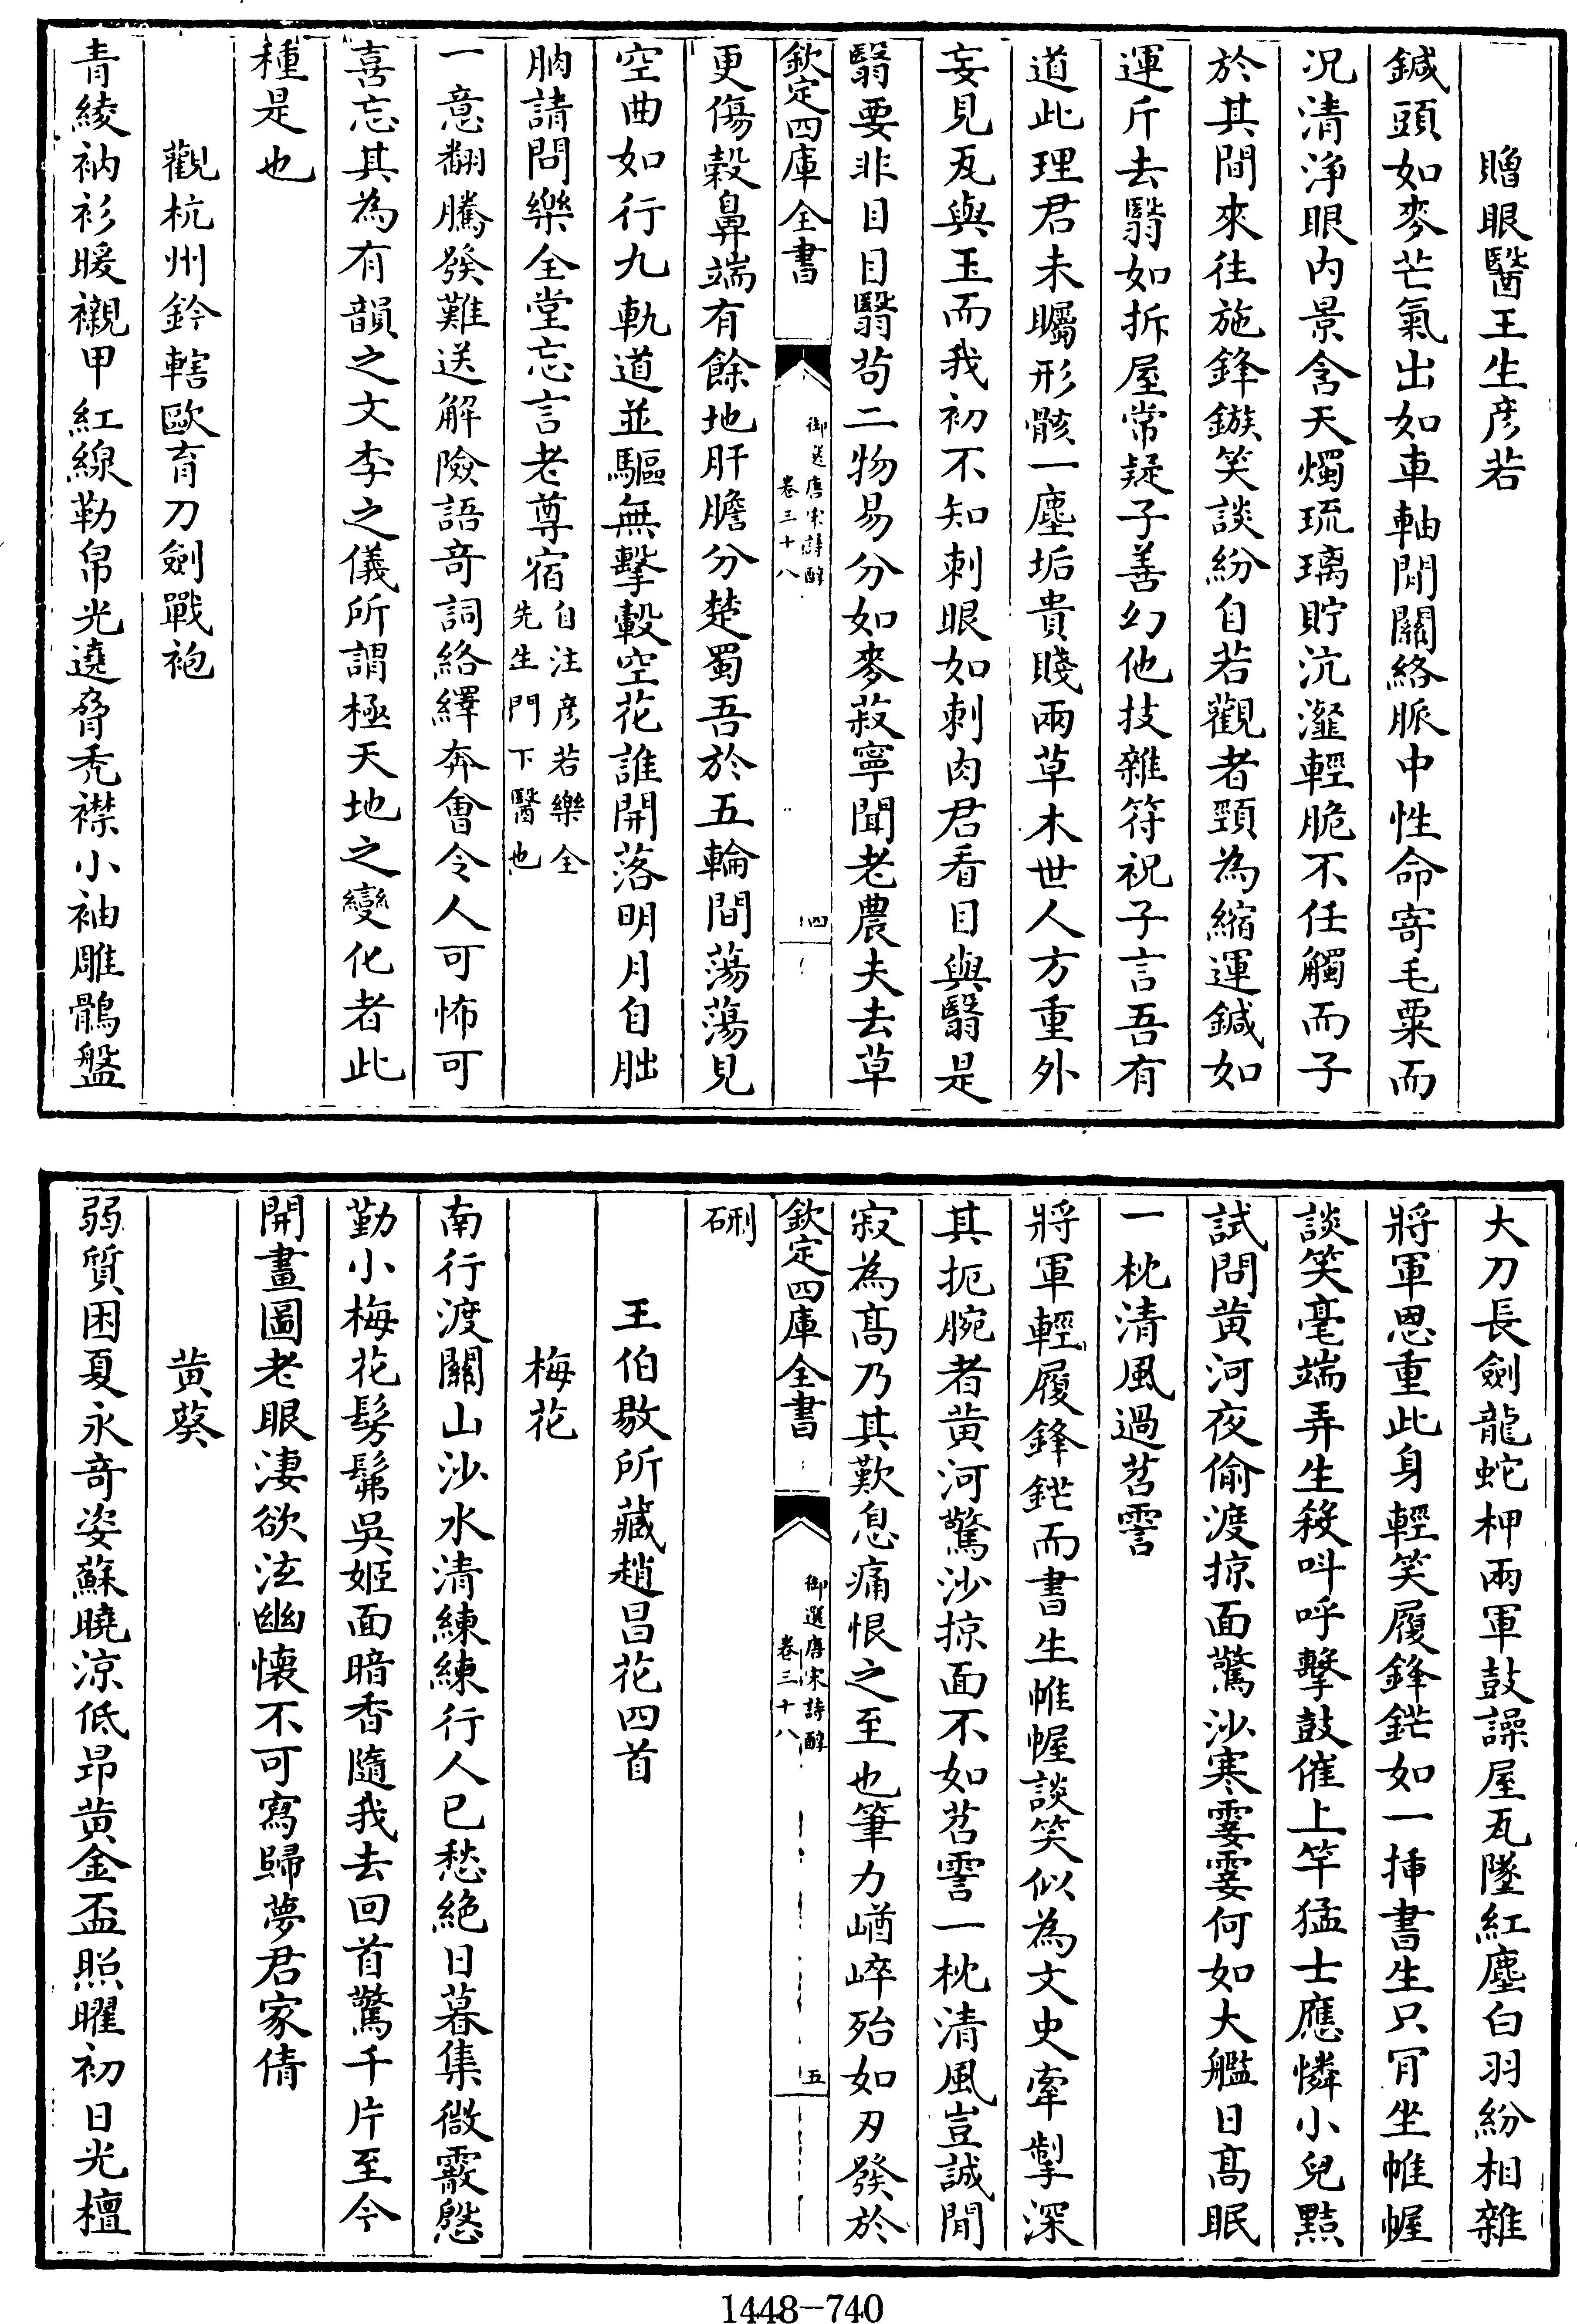 贈眼醫王生彦若
鍼頭如麥芒氣出如車軸間關絡脈中性命寄毛粟而
况清淨眼内景含天燭琉璃貯沆瀣輕脆不任觸而子
於其間來往施鋒鏃笑談紛自若觀者頸為縮運鍼如
運斤去翳如拆屋常疑子善幻他技雜符祝子言吾有
道此理君未矚形骸一塵垢貴賤兩草木世人方重外
妄見瓦與玉而我初不知刺眼如刺肉君看目與翳是
翳要非目目翳苟二物易分如麥菽寧聞老農夫去草
欽定四庫全書
御選唐宋詩醇
卷三十八
四
更傷榖鼻端有餘地肝膽分楚蜀吾於五輪間蕩蕩見
空曲如行九軌道並驅無擊轂空花誰開落明月自朏
朒請問樂全堂忘言老尊宿自注彦若樂全
先生門下醫也
一意翻騰發難送解險語竒詞絡繹奔會令人可怖可
喜忘其為有韻之文李之儀所謂極天地之變化者此
種是也
觀杭州鈐轄歐育刀劍戰袍
青綾衲衫暖襯甲紅線勒帛光遶脅禿襟小袖雕鶻盤
大刀長劍龍蛇柙兩軍鼓譟屋瓦墜紅塵白羽紛相雜
將軍恩重此身輕笑履鋒鋩如一揷書生只肎坐帷幄
談笑毫端弄生殺呌呼擊鼓催上竿猛士應憐小兒黠
試問黄河夜偷渡掠面驚沙寒霎霎何如大艦日髙眠
一枕清風過苕霅
將軍輕履鋒鋩而書生帷幄談笑似為文史牽掣深
其扼腕者黄河驚沙掠面不如苕霅一枕清風豈誠閒
寂為髙乃其歎息痛恨之至也筆力崷崪殆如刃發於
欽定四庫全書
御選唐宋詩醇
卷三十八
五
硎
王伯敭所藏趙昌花四首
梅花
南行渡關山沙水清練練行人已愁絶日暮集微霰慇
勤小梅花髣髴吳姬面暗香隨我去回首驚千片至今
開畫圖老眼淒欲泫幽懐不可寫歸夢君家倩
黄葵
弱質困夏永竒姿蘇曉涼低昂黄金盃照曜初日光檀
1448-740